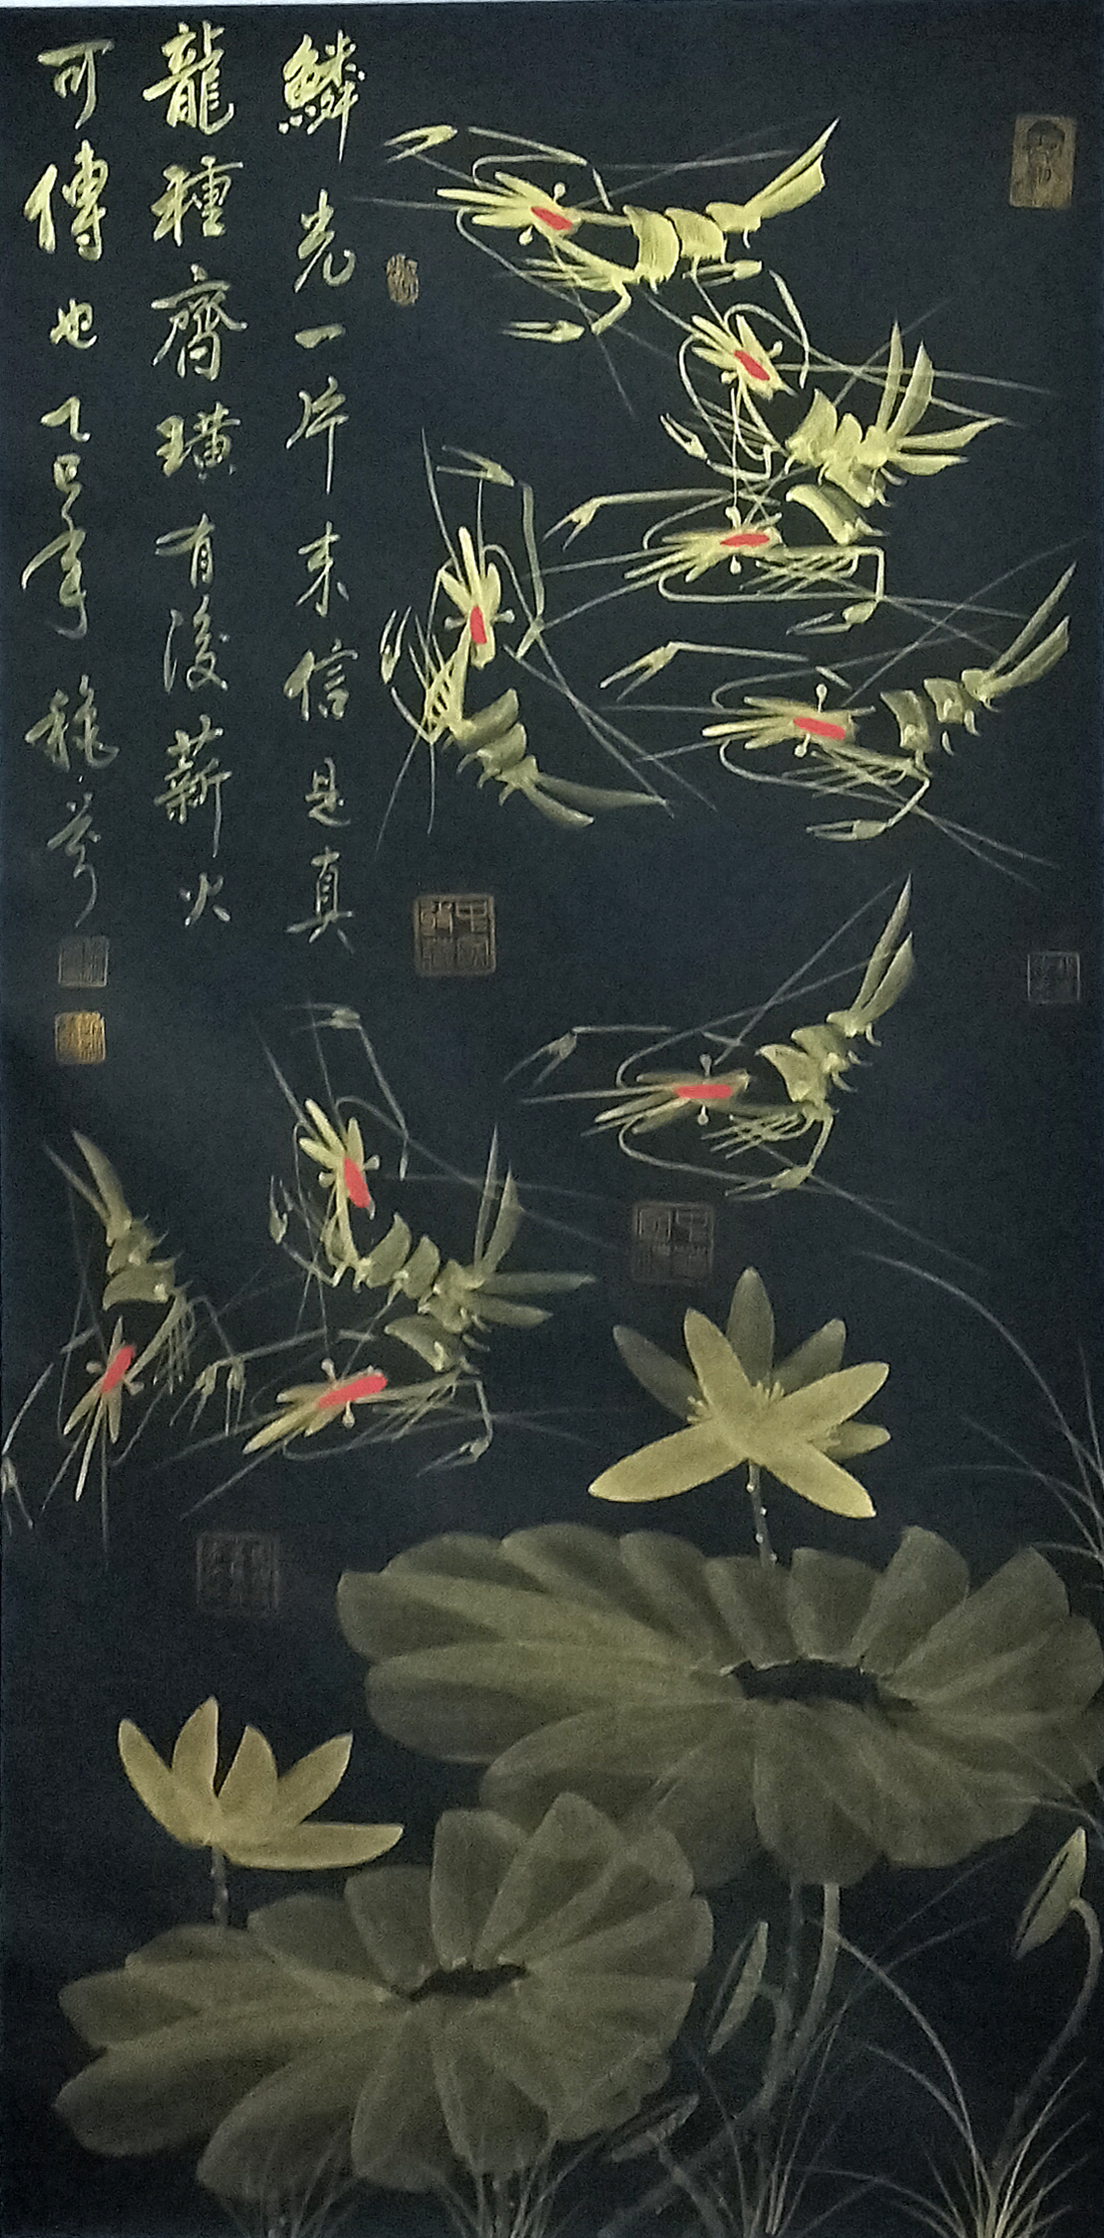 鱗光一片未信是真
龍種齊璜有後薪火
可傳也乙巳年